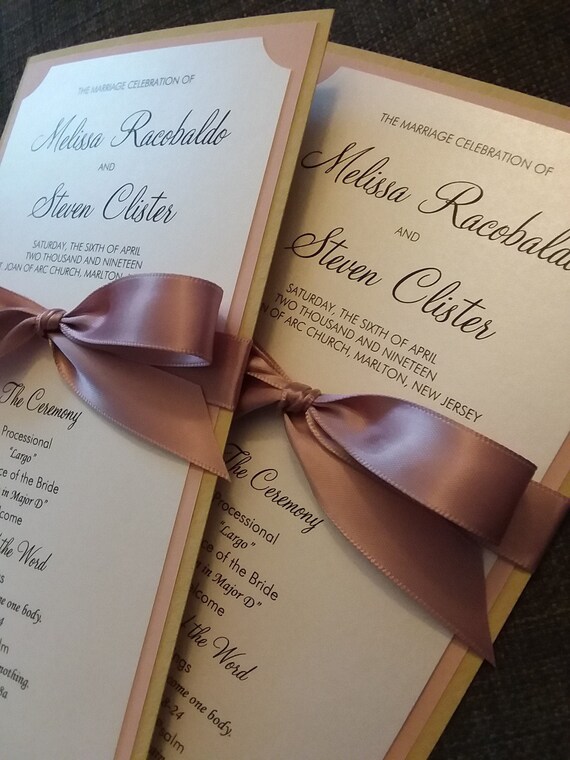 THE MARRIAGE CELEBRATION OF
Melissa Racobaldo
AND
Steven Clister
SATURDAY, THE SIXTH OF APRIL
TWO THOUSAND AND NINETEEN
JOAN OF ARC CHURCH, MARLTON,
The Ceremony
Processional
"Largo"
of the Bride
in Major D"
the Word
one body.
nothing.
8a
THE MARRIAGE CELEBRATION OF
Melissa Racobaldo
AND
Steven Clister
SATURDAY, THE SIXTH OF APRIL
TWO THOUSAND AND NINETEEN
OF ARC CHURCH, MARLTON, NEW JERSEY
The Ceremony
Processional
"Largo"
of the Bride
in Major D"
the Word
one body.
8-24